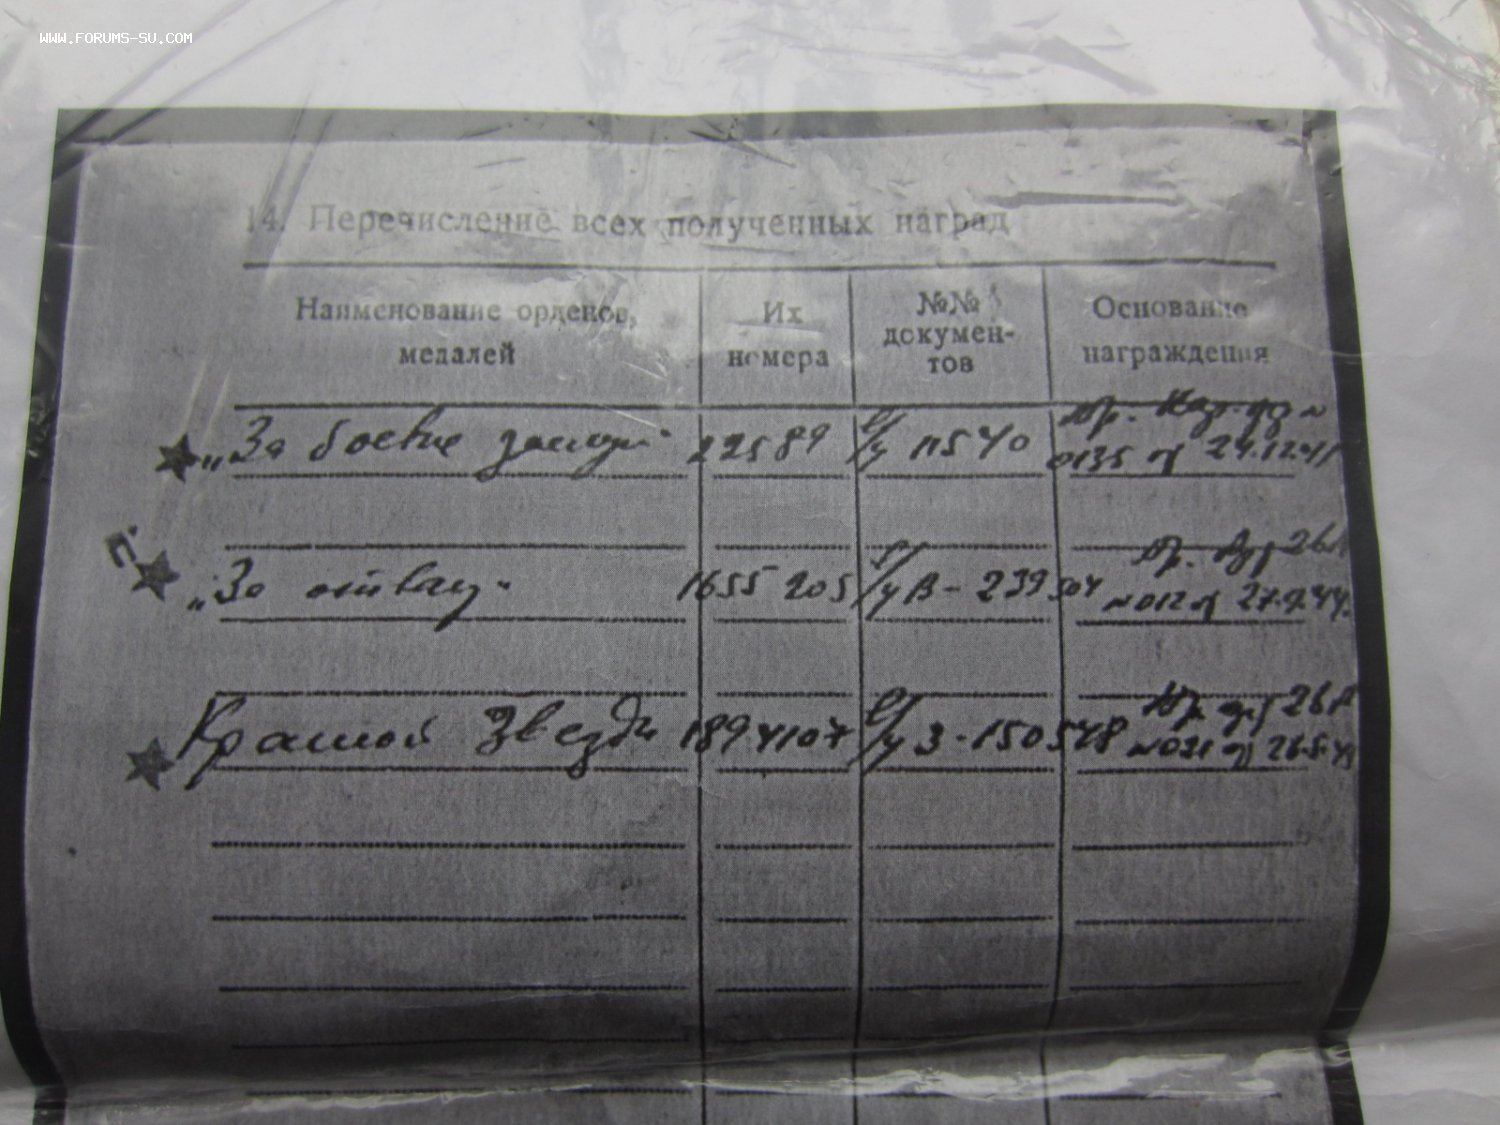 WWW.FORUMS-SU.COM
14. Перечисление всех полученных наград
Наименование орденов, медалей
Их номера
№№ докумен-
тов
Основание награждения
„За боевые заслуги" 22589 11540
0135 от 24.12.41
„За отвагу" 1655205 В-239504
26А
№012 от 27.9.44
Красной Звезды 1894107 З-150548
26А
№031 от 26.5.45